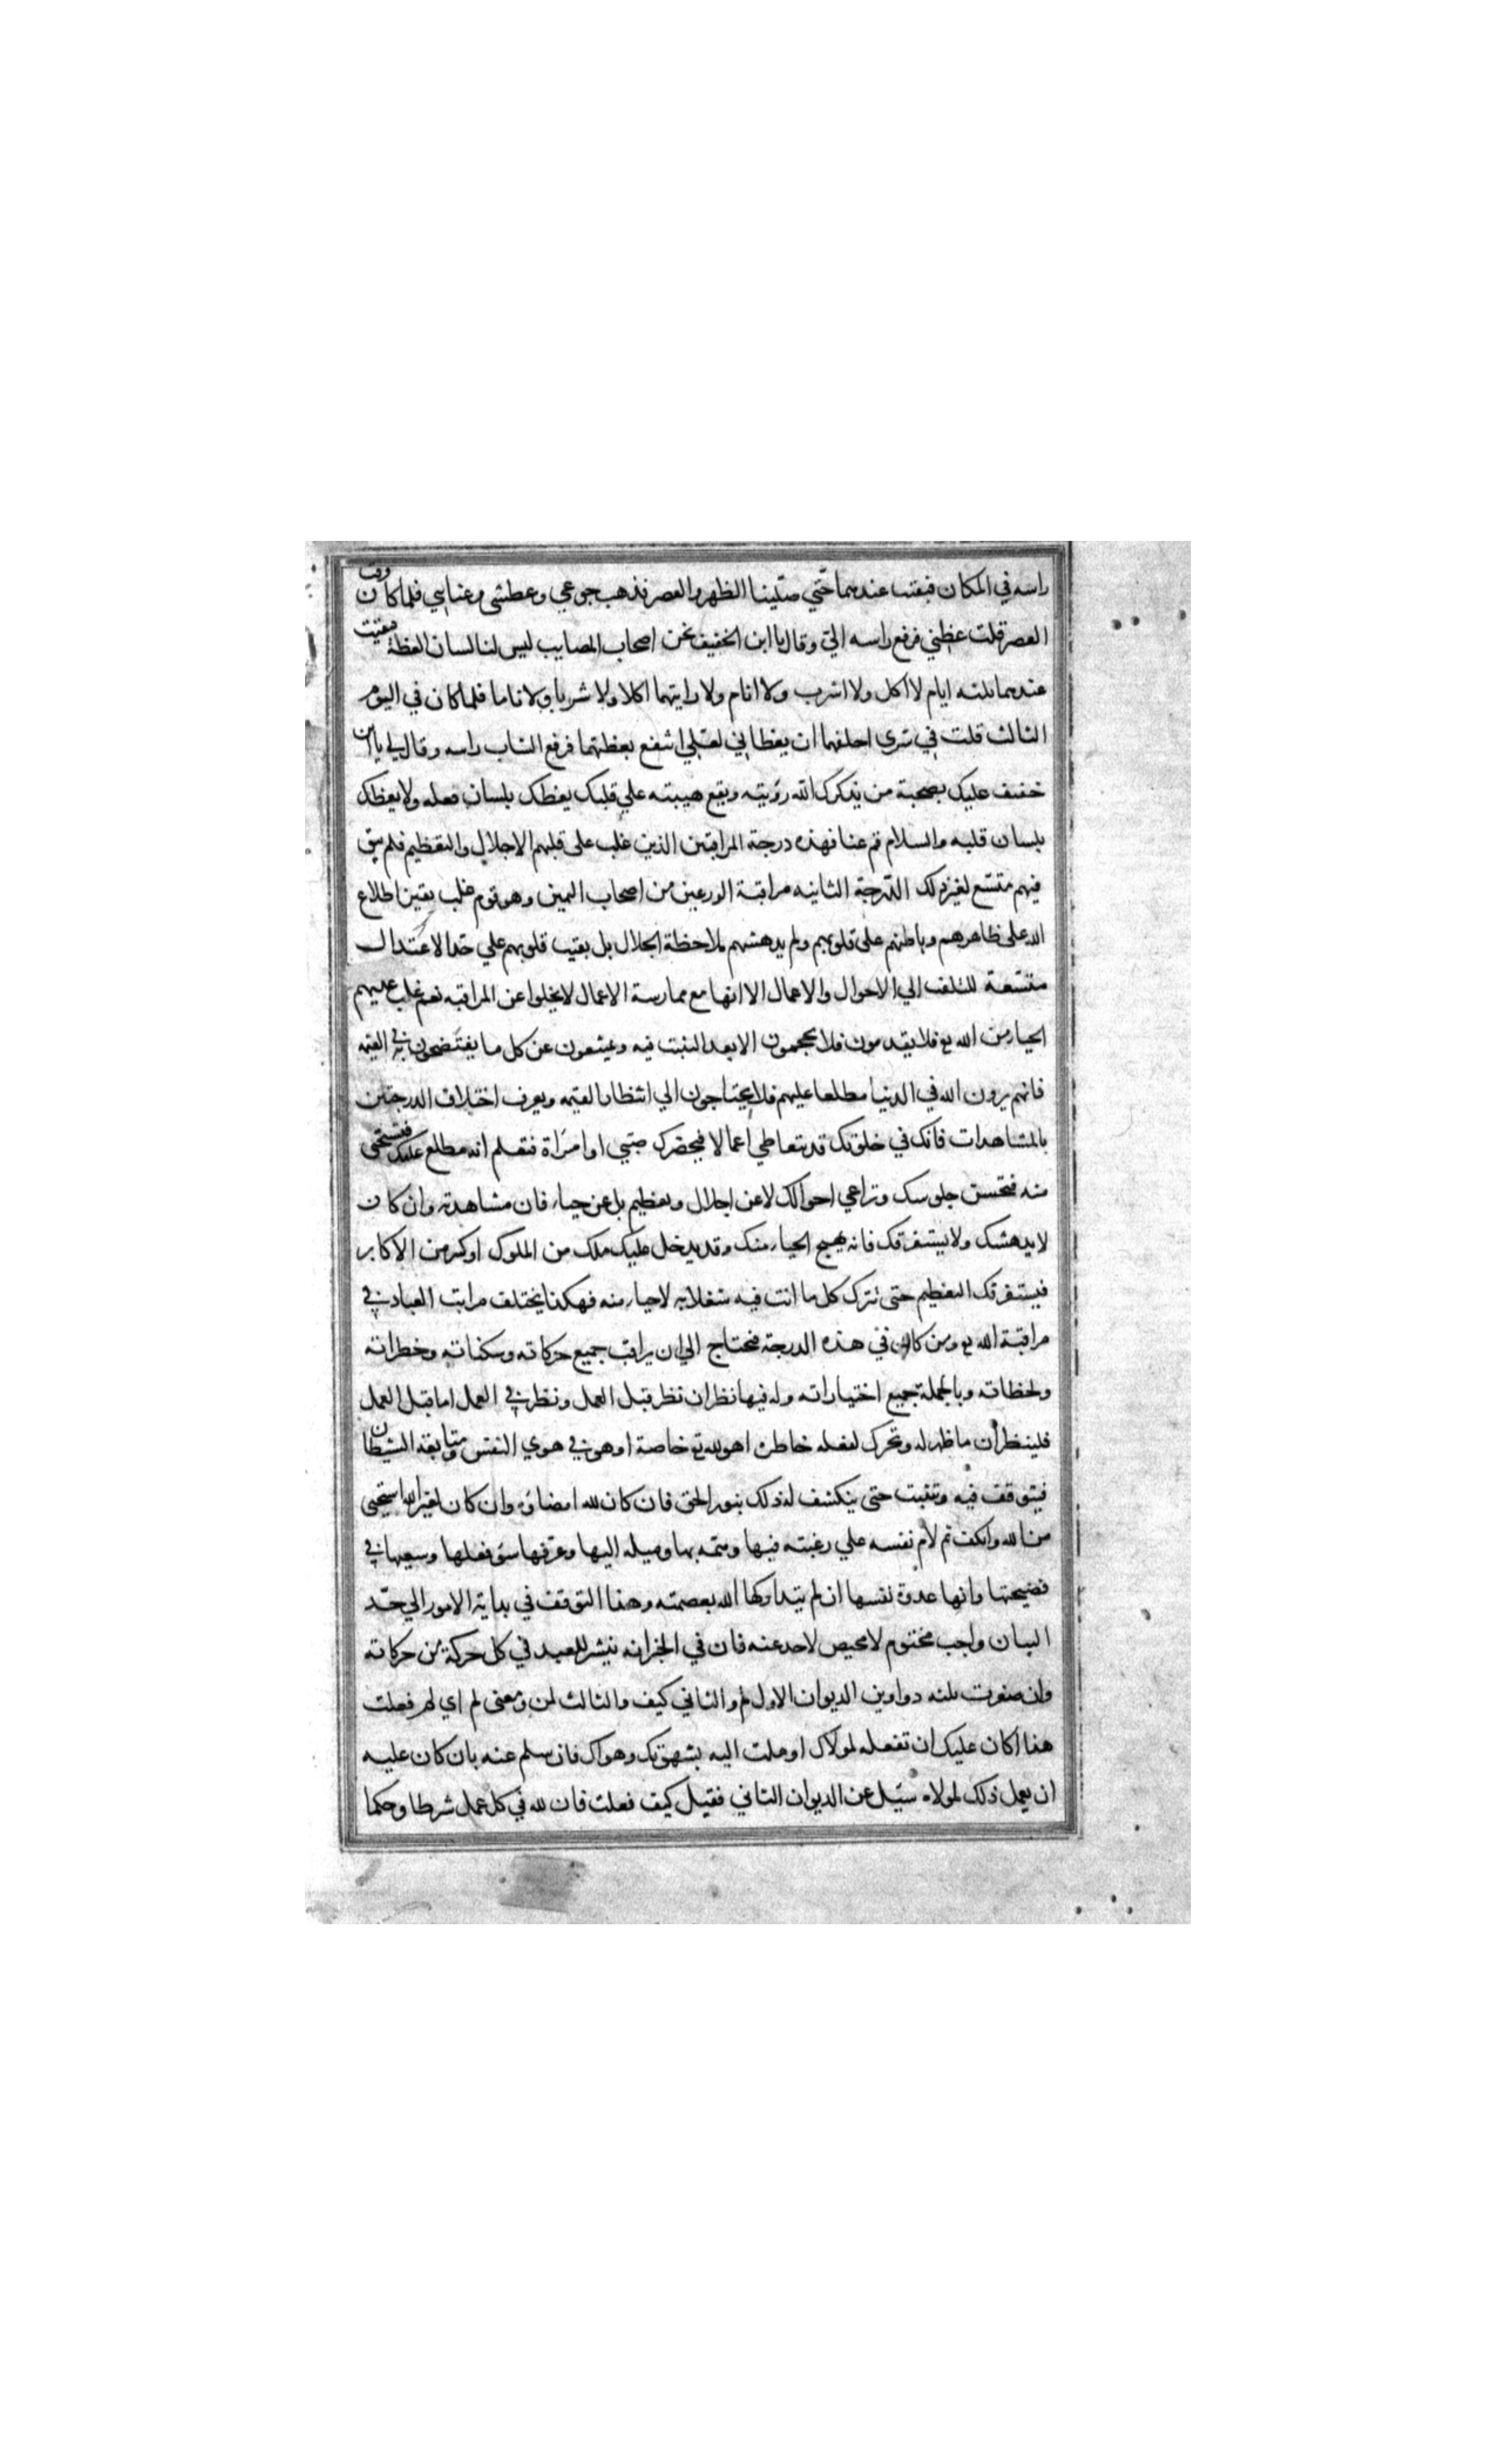 راسه في المكان فبقيت عندهما حتّي صلّينا الظهر والعصر فذهب جوعي وعطشي وعناىي فلما كان وقت
العصر قلت عظني فرفع راسه اليّ وقال يا ابن الخفيف نحن اصحاب المصايب ليس لنا لسان العظة فبقيت
عندهما ثلثه ايام لا اكل ولا اشرب ولا انام ولا رايتهما اكلا ولا شربا ولا ناما فلما كان في اليوم
الثالث قلت في سري احلفهما ان يعظاني لعلي انتفع بعظتهما فرفع الشاب راسه وقال لي يا ابن
خفيف عليك بصحبة من يذكرك الله رؤيته ويقع هيبته علي قلبك يعظك بلسان فعله ولا يعظك
بلسان قلبه والسلام قم عنا فهذه درجة المراقبين الذين غلب على قلبهم الاجلال والتعظيم فلم يبق
فيهم متّسع لغير ذلك الدّرجة الثانيه مراقبة الورعين من اصحاب اليمين وهو قوم غلب يقين اطلاع
الله على ظاهرهم وباطنهم على قلوبهم ولم يدهشهم ملاحظة الجلال بل بقيت قلوبهم علي حدّ الاعتدال
متّسعة للتلفت الي الاحوال والاعمال الا انها مع ممارسة الاعمال لا يخلوا عن المراقبه نعم غلب عليهم
الحياء من الله تع فلا يقدمون فلا يحجمون الا بعد التثبت فيه ويمتنعون عن كل ما يفتضحون به في القيمه
فانهم يرون الله في الدنيا مطلعا عليهم فلا يحتاجون الي انتظار القيمه ويعرف اختلاف الدرجتين
بالمشاهدات فانك في خلوتك قد يتعاطي اعمالا فيحضرك صبّي او امراة فتعلم انه مطلع عليك فتستحيي
منه فتحسن جلوسك وتراعي احوالك لا عن اجلال وتعظيم بل عن حياء فان مشاهدته وان كان
لا يدهشك ولا يستغرقك فانه يهيج الحياء منك وقد يدخل عليك ملك من الملوك او كبير من الاكابر
فيستغرقك التعظيم حتى تترك كل ما انت فيه شغلا به لا حياء منه فهكذا يختلف مراتب العباد في
مراقبة الله تع ومن كان في هذه الدرجة فيحتاج الي ان يراقب جميع حركاته وسكناته وخطراته
ولحظاته وبالجملة جميع اختياراته وله فيها نظران نظر قبل العمل ونظر في العمل اما قبل العمل
فلينظر ان ما ظهر له وتحرك لفعله خاطره اهو لله تع خاصة او هو في هوي النفس ومتابعة الشيطان
فيتوقف فيه ويتثبت حتى ينكشف له ذلك بنور الحق فان كان لله امضاه وان كان لغير الله استحيي
من الله وانكف ثم لام نفسه علي رغبته فيها وهمّه بها وميله اليها وعرفها سوء فعلها وسعيها في
فضيحتها وانها عدوة نفسها ان لم يتداركها الله بعصمته وهذا التوقف في بداية الامور الي حدّ
البيان واجب محتوم لا محيص لاحد عنه فان في الخبر انه ينشر للعبد في كل حركة من حركاته
وان صغرت ثلثه دواوين الديوان الاول لم والثاني كيف والثالث لمن ومعنى لم اي لم فعلت
هذا اكان عليك ان تفعله لمولاك او ملت اليه بشهوتك وهواك فان سلم عنه بان كان عليه
ان يعمل ذلك لمولاه سئل عن الديوان الثاني فقيل كيف فعلت فان لله في كل عمل شرطا وحكما